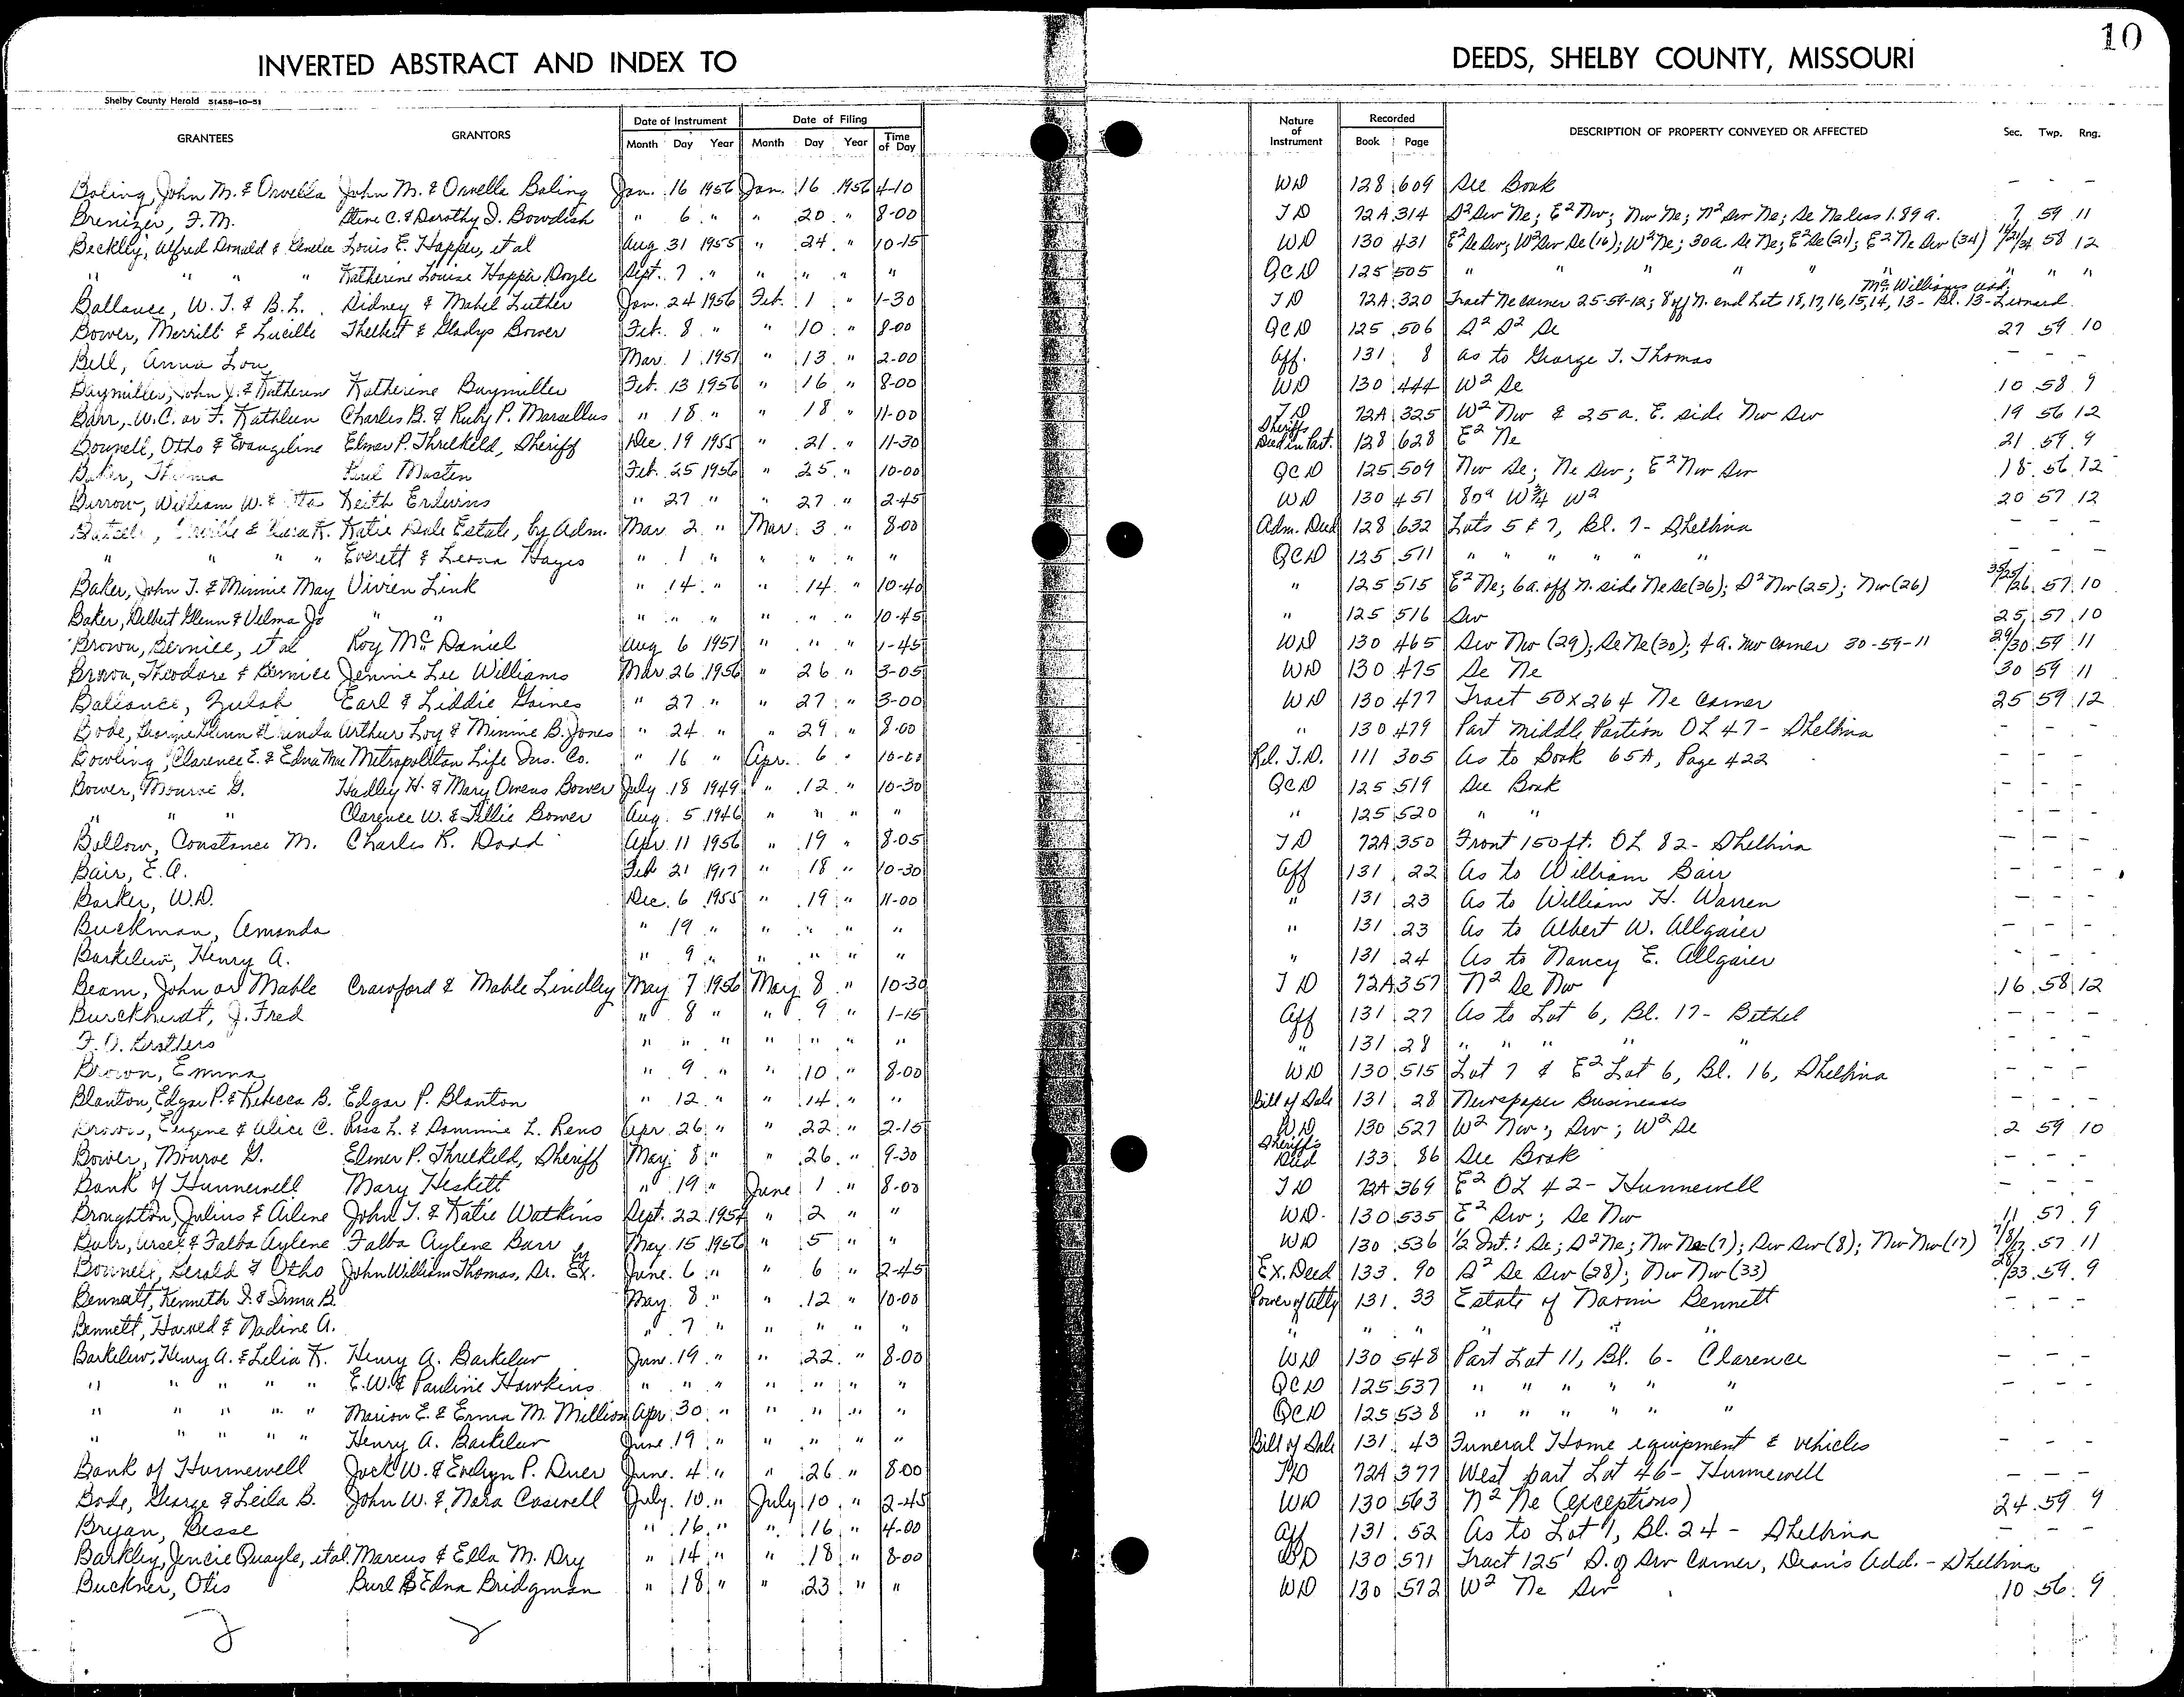 10
INVERTED ABSTRACT AND INDEX TO DEEDS, SHELBY COUNTY, MISSOURI
Shelby County Herald 51458-10-51
GRANTEES GRANTORS Date of Instrument Date of Filing Nature of Instrument Recorded DESCRIPTION OF PROPERTY CONVEYED OR AFFECTED Sec. Twp. Rng.
Month Day Year Month Day Year Time of Day Book Page
Boling, John M. & Orvella John M. & Orvella Boling Jan. 16 1956 Jan. 16 1956 4-10 WD 128 609 See Book - - -
Brenizer, F.M. Stine C. & Dorothy I. Bowdish " 6 " " 20 " 8-00 TD 72A 314 S² Sw Ne; E² Nw; Nw Ne; N² Sw Ne; Se Ne less 1.89 a. 7 59 11
Beckley, Alfred Donald & Louis E. Hopper, et al Aug 31 1955 " 24 " 10-15 WD 130 431 E² Se Sw; W² Sw Se (16); W² Ne; 30 a. Se Ne; E² Se (21); E² Ne Sw (34) 16/21/34 58 12
" " " " Katherine Louise Hopper Doyle Sept. 7 " " " " " QCD 125 505 " " " " " " " "
Ballance, W. T. & B.L. Sidney & Mabel Luther Jan. 24 1956 Feb. 1 " 1-30 TD 72A 320 Tract Ne corner 25-59-12; 8' off N. end Lot 18,17,16,15,14,13- Bl. 13- McWilliams add, Leonard
Bower, Merrill & Lucille Thelbert & Gladys Bower Feb. 8 " " 10 " 8-00 QCD 125 506 S² S² Se 27 59 10
Bell, Anna Lou Mar. 1 1951 " 13 " 2-00 Aff. 131 8 as to George T. Thomas - - -
Baymiller, John J. & Katherine Katherine Baymiller Feb. 13 1956 " 16 " 8-00 WD 130 444 W² Se 10 58 9
Barr, W.C. or F. Kathleen Charles B. & Ruby P. Marsellus " 18 " " 18 " 11-00 TD 72A 325 W² Nw & 25 a. E. side Nw Sw 19 56 12
Bonnell, Otho & Evangeline Elmer P. Threlkeld, Sheriff Dec. 19 1955 " 21 " 11-30 Sheriffs Deed in Part. 128 628 E² Ne 21 59 9
Baker, Thelma Paul Masten Feb. 25 1956 " 25 " 10-00 QCD 125 509 Nw Se; Ne Sw; E² Nw Sw 18 56 12
Burrow, William W. & Keith Erdwins " 27 " " 27 " 2-45 WD 130 451 80a W¾ W² 20 57 12
Katie Dale Estate, by Adm. Mar. 2 " Mar. 3 " 8-00 Adm. Deed 128 632 Lots 5 & 7, Bl. 7- Shelbina - - -
" " " Everett & Leona Hayes " 1 " " " " " QCD 125 511 " " " " " " - - -
Baker, John T. & Minnie May Vivien Link " 14 " " 14 " 10-40 " 125 515 E² Ne; 6a. off N. side Ne Se (36); S² Nw (25); Nw (26) 36/25/26 57 10
Baker, Delbert Glenn & Velma Jo " " " " " " " " 10-45 " 125 516 Sw 25 57 10
Brown, Bernice, et al Roy McDaniel Aug 6 1951 " " " 1-45 WD 130 465 Sw Nw (29); Se Ne (30); 4 a. Nw corner 30-59-11 29/30 59 11
Brown, Theodore & Bernice Jennie Lee Williams Mar. 26 1956 " 26 " 3-05 WD 130 475 Se Ne 30 59 11
Ballance, Zulah Earl & Liddie Gaines " 27 " " 27 " 3-00 WD 130 477 Tract 50 x 264 Ne Corner 25 59 12
Bode, Arthur Loy & Minnie B. Jones " 24 " " 29 " 8-00 " 130 479 Part middle Portion OL 47- Shelbina - - -
Bowling, Clarence E. & Edna Mae Metropolitan Life Ins. Co. " 16 " Apr. 6 " 10-00 Rel. T.D. 111 305 As to Book 65A, Page 422
Bower, Monroe G. Hadley H. & Mary Owens Bower July 18 1949 " 12 " 10-30 QCD 125 519 See Book - - -
" " " Clarence W. & Tillie Bower Aug. 5 1946 " " " " " 125 520 " " - - -
Bollow, Constance M. Charles R. Dodd Apr. 11 1956 " 19 " 8-05 TD 72A 350 Front 150 ft. OL 82- Shelbina - - -
Bair, E.A. Feb 21 1917 " 18 " 10-30 Aff 131 22 As to William Bair - - -
Barker, W.D. Dec. 6 1955 " 19 " 11-00 " 131 23 As to William H. Warren - - -
Buckman, Amanda " 19 " " " " " " 131 23 As to Albert W. Allgaier - - -
Barkelew, Henry A. " 9 " " " " " " 131 24 As to Nancy E. Allgaier - - -
Beam, John or Mable Crawford & Mable Lindley May 7 1956 May 8 " 10-30 TD 72A 357 N² Se Nw 16 58 12
Burckhardt, J. Fred " 8 " " 9 " 1-15 Aff 131 27 As to Lot 6, Bl. 17- Bethel - - -
" " " " " " " " 131 28 " " " " " - - -
Brown, Emma " 9 " " 10 " 8-00 WD 130 515 Lot 7 & E² Lot 6, Bl. 16, Shelbina - - -
Blanton, Edgar P. & Rebecca B. Edgar P. Blanton " 12 " " 14 " " Bill of Sale 131 28 Newspaper Businesses - - -
Brown, Eugene & Alice C. Ross L. & Dommie L. Reno Apr. 26 " " 22 " 2-15 WD 130 527 W² Nw; Sw; W² Se 2 59 10
Bower, Monroe G. Elmer P. Threlkeld, Sheriff May 8 " " 26 " 9-30 Sheriff's Deed 133 86 See Book - - -
Bank of Hunnewell Mary Heskett " 19 " June 1 " 8-00 TD 72A 369 E² OL 42- Hunnewell - - -
Broughton, Julius & Arlene John T. & Katie Watkins Sept. 22 1954 " 2 " " WD 130 535 E² Sw; Se Nw 11 57 9
Barr, Ursel & Falba Aylene Falba Aylene Barr May 15 1956 " 5 " " WD 130 536 1/2 Int.: Se; S² Ne; Nw Ne (7); Sw Sw (8); Nw Nw (17) 7/8/17 57 11
Bonnell, Gerald & Otho John William Thomas, Sr. by Ex. June 6 " " 6 " 2-45 Ex. Deed 133 90 S² Se Sw (28); Nw Nw (33) 28/33 59 9
Bennett, Kenneth D. & Irma B. May 8 " " 12 " 10-00 Power of Atty 131 33 Estate of Naomi Bennett - - -
Bennett, Harold & Nadine A. " 7 " " " " " " " " " " " - - -
Barkelew, Henry A. & Lelia K. Henry A. Barkelew June 19 " " 22 " 8-00 WD 130 548 Part Lot 11, Bl. 6- Clarence - - -
" " " " " E.W. & Pauline Hawkins " " " " " " " QCD 125 537 " " " " " " - - -
" " " " " Marion E. & Erma M. Million Apr. 30 " " " " " QCD 125 538 " " " " " "
" " " " " Henry A. Barkelew June 19 " " " " " Bill of Sale 131 43 Funeral Home equipment & vehicles - - -
Bank of Hunnewell Jack W. & Evelyn P. Duer June 4 " " 26 " 8-00 TD 72A 377 West part Lot 46- Hunnewell - - -
Bode, George & Leila B. John W. & Nora Caswell July 10 " July 10 " 2-45 WD 130 563 N² Ne (exceptions) 24 59 9
Bryan, Besse " 16 " " 16 " 4-00 Aff 131 52 As to Lot 1, Bl. 24- Shelbina - - -
Barkley, Jencie Quayle, et al. Marcus & Ella M. Dry " 14 " " 18 " 8-00 WD 130 571 Tract 125' S. of Sw Corner, Dean's Add. - Shelbina
Buckner, Otis Burl & Edna Bridgman " 18 " " 23 " " WD 130 572 W² Ne Sw 10 56 9